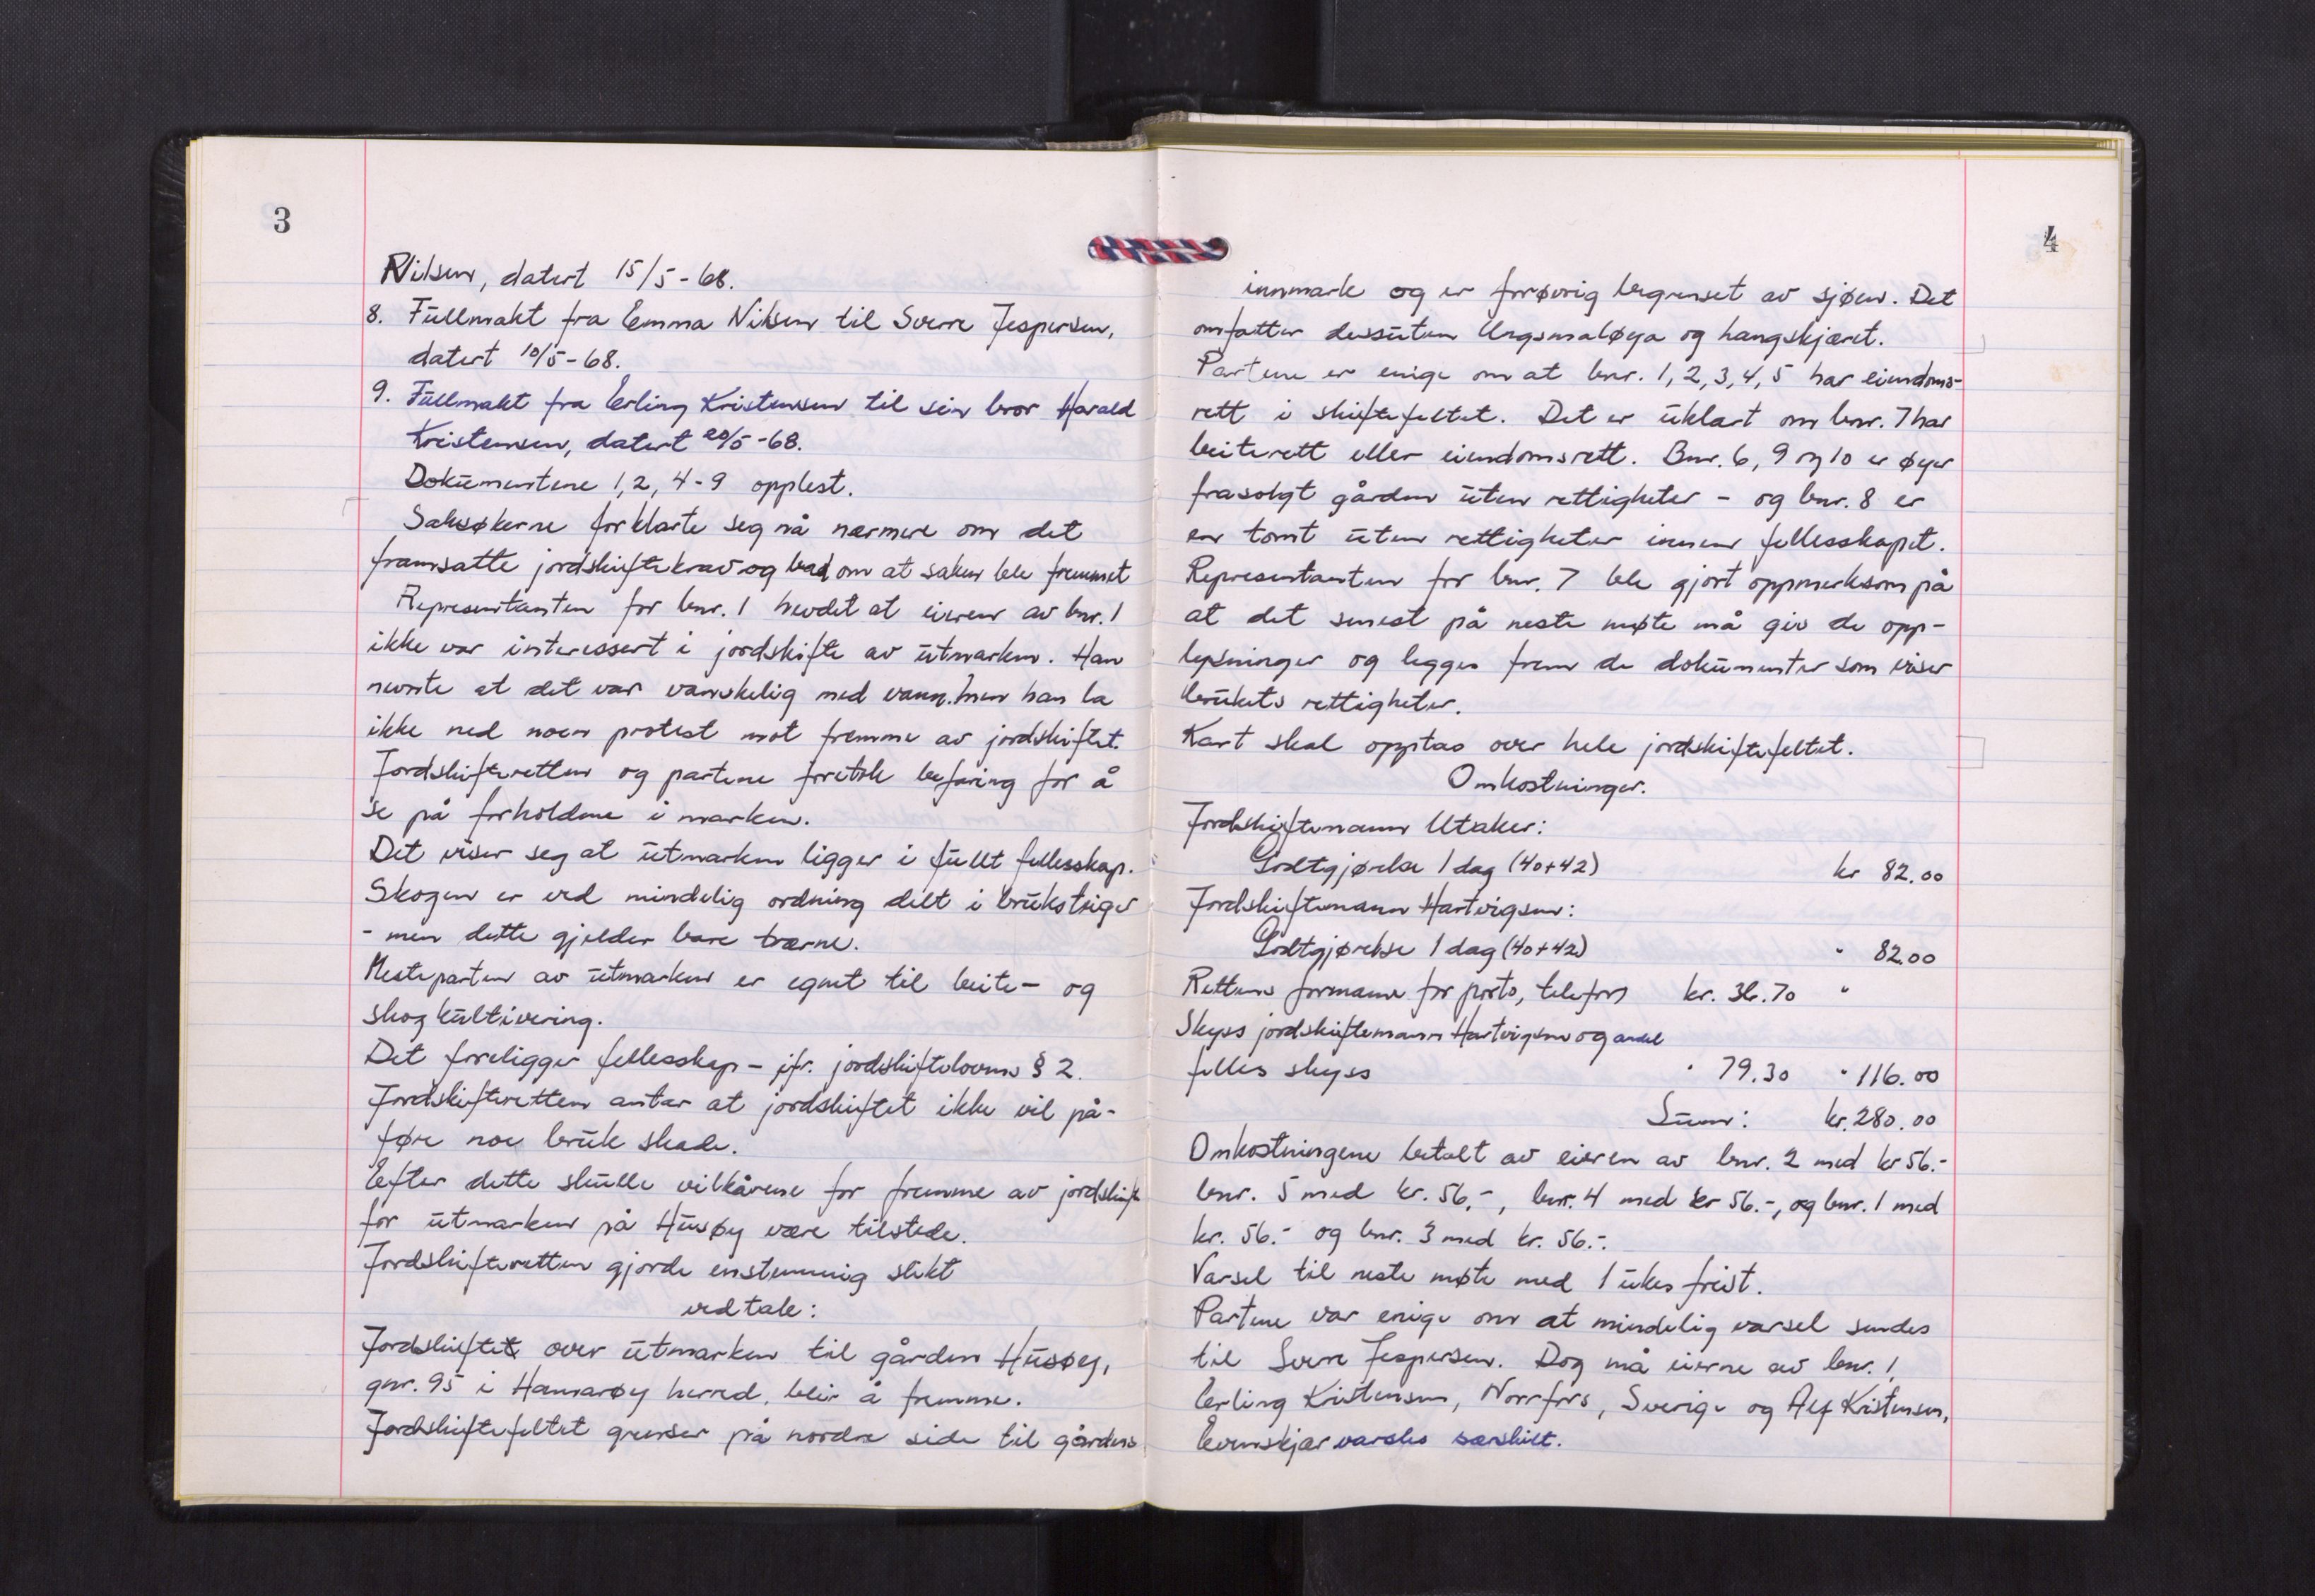 3
Nilsen, datert 15/5-68.
8. Fullmakt fra Emma Nilsen til Sverre Jespersen,
datert 10/5-68.
9. Fullmakt fra Erling Kristensen til sin bror Harald
Kristensen, datert 20/5-68.
Dokumentene 1, 2, 4-9 opplest.
Saksøkerne forklarte seg nå nærmere om det
framsatte jordskiftekrav og bad om at saken ble fremmet
Representanten for bnr. 1 hevdet at eieren av bnr. 1
ikke var interessert i jordskifte av utmarken. Han
nevnte at det var vanskelig med vann. Men han la
ikke ned noen protest mot fremme av jordskiftet.
Jordskifteretten og partene foretok befaring for å
se på forholdene i marken.
Det viser seg at utmarken ligger i fullt fellesskap.
Skogen er ved mindelig ordning delt i bruksteiger
- men dette gjelder bare trærne.
Mesteparten av utmarken er egnet til beite- og
skogkultivering.
Det foreligger fellesskap - jfr. jordskiftelovens § 2.
Jordskifteretten antar at jordskiftet ikke vil på-
føre noe bruk skade.
Efter dette skulle vilkårene for fremme av jordskifte
for utmarken på Husøy være tilstede.
Jordskifteretten gjorde enstemmig slikt
vedtak:
Jordskiftet over utmarken til gården Husøy,
gnr. 95 i Hamarøy herred, blir å fremme.
Jordskiftefeltet grenser på nordre side til gårdens
4
innmark og er forøvrig begrenset av sjøen. Det
omfatter dessuten Ungsmaløya og Langskjæret.
Partene er enige om at bnr. 1, 2, 3, 4, 5 har eiendoms-
rett i skiftefeltet. Det er uklart om bnr. 7 har
beiterett eller eiendomsrett. Bnr. 6, 9 og 10 er øyer
frasolgt gården uten rettigheter - og bnr. 8 er
en tomt uten rettigheter innen fellesskapet.
Representanten for bnr. 7 ble gjort oppmerksom på
at det senest på neste møte må gis de opp-
lysninger og legges frem de dokumenter som viser
brukets rettigheter.
Kart skal opptas over hele jordskiftefeltet.
Omkostninger.
Jordskiftemann Utaker:
Godtgjørelse 1 dag (40+42) kr 82.00
Jordskiftemann Hartvigsen:
Godtgjørelse 1 dag (40+42) " 82.00
Rettens formann for porto, telefon kr. 36.70 "
Skyss jordskiftemann Hartvigsen og andel
felles skyss " 79.30 " 116.00
Sum: kr. 280.00
Omkostningene betalt av eieren av bnr. 2 med kr 56.-
bnr. 5 med kr. 56.-, bnr. 4 med kr 56.-, og bnr. 1 med
kr. 56.- og bnr. 3 med kr. 56.-.
Varsel til neste møte med 1 ukes frist.
Partene var enige om at mindelig varsel sendes
til Sverre Jespersen. Dog må eierne av bnr. 1,
Erling Kristensen, Norrfors, Sverige og Alf Kristensen,
Evenskjær varsles særskilt.